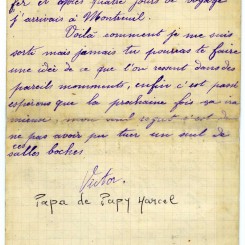 fer et après quatre jours de voyage
j'arrivais à Montreuil.
Voilà comment je me suis
sorti mais jamais tu pourras te faire
une idée de ce que l'on ressent dans des
pareils moments, enfin c'est passé
espérons que la prochaine fois ça ira
mieux, mon seul regret c'est de
ne pas avoir pu tuer un seul de
ces salles boches
Victor.
Papa de Papy Marcel